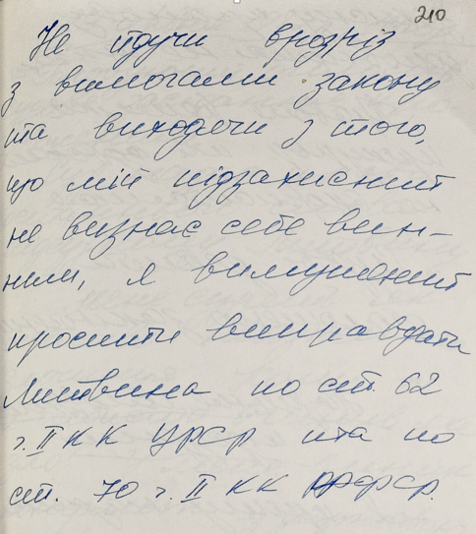 210
Не йдучи врозріз
з вимогами закону
та виходячи з того,
що мій підзахисний
не визнає себе вин-
ним, я вимушений
просити виправдати
Литвина по ст. 62
ч. II КК УРСР та по
ст. 70 ч. II КК РРФСР.